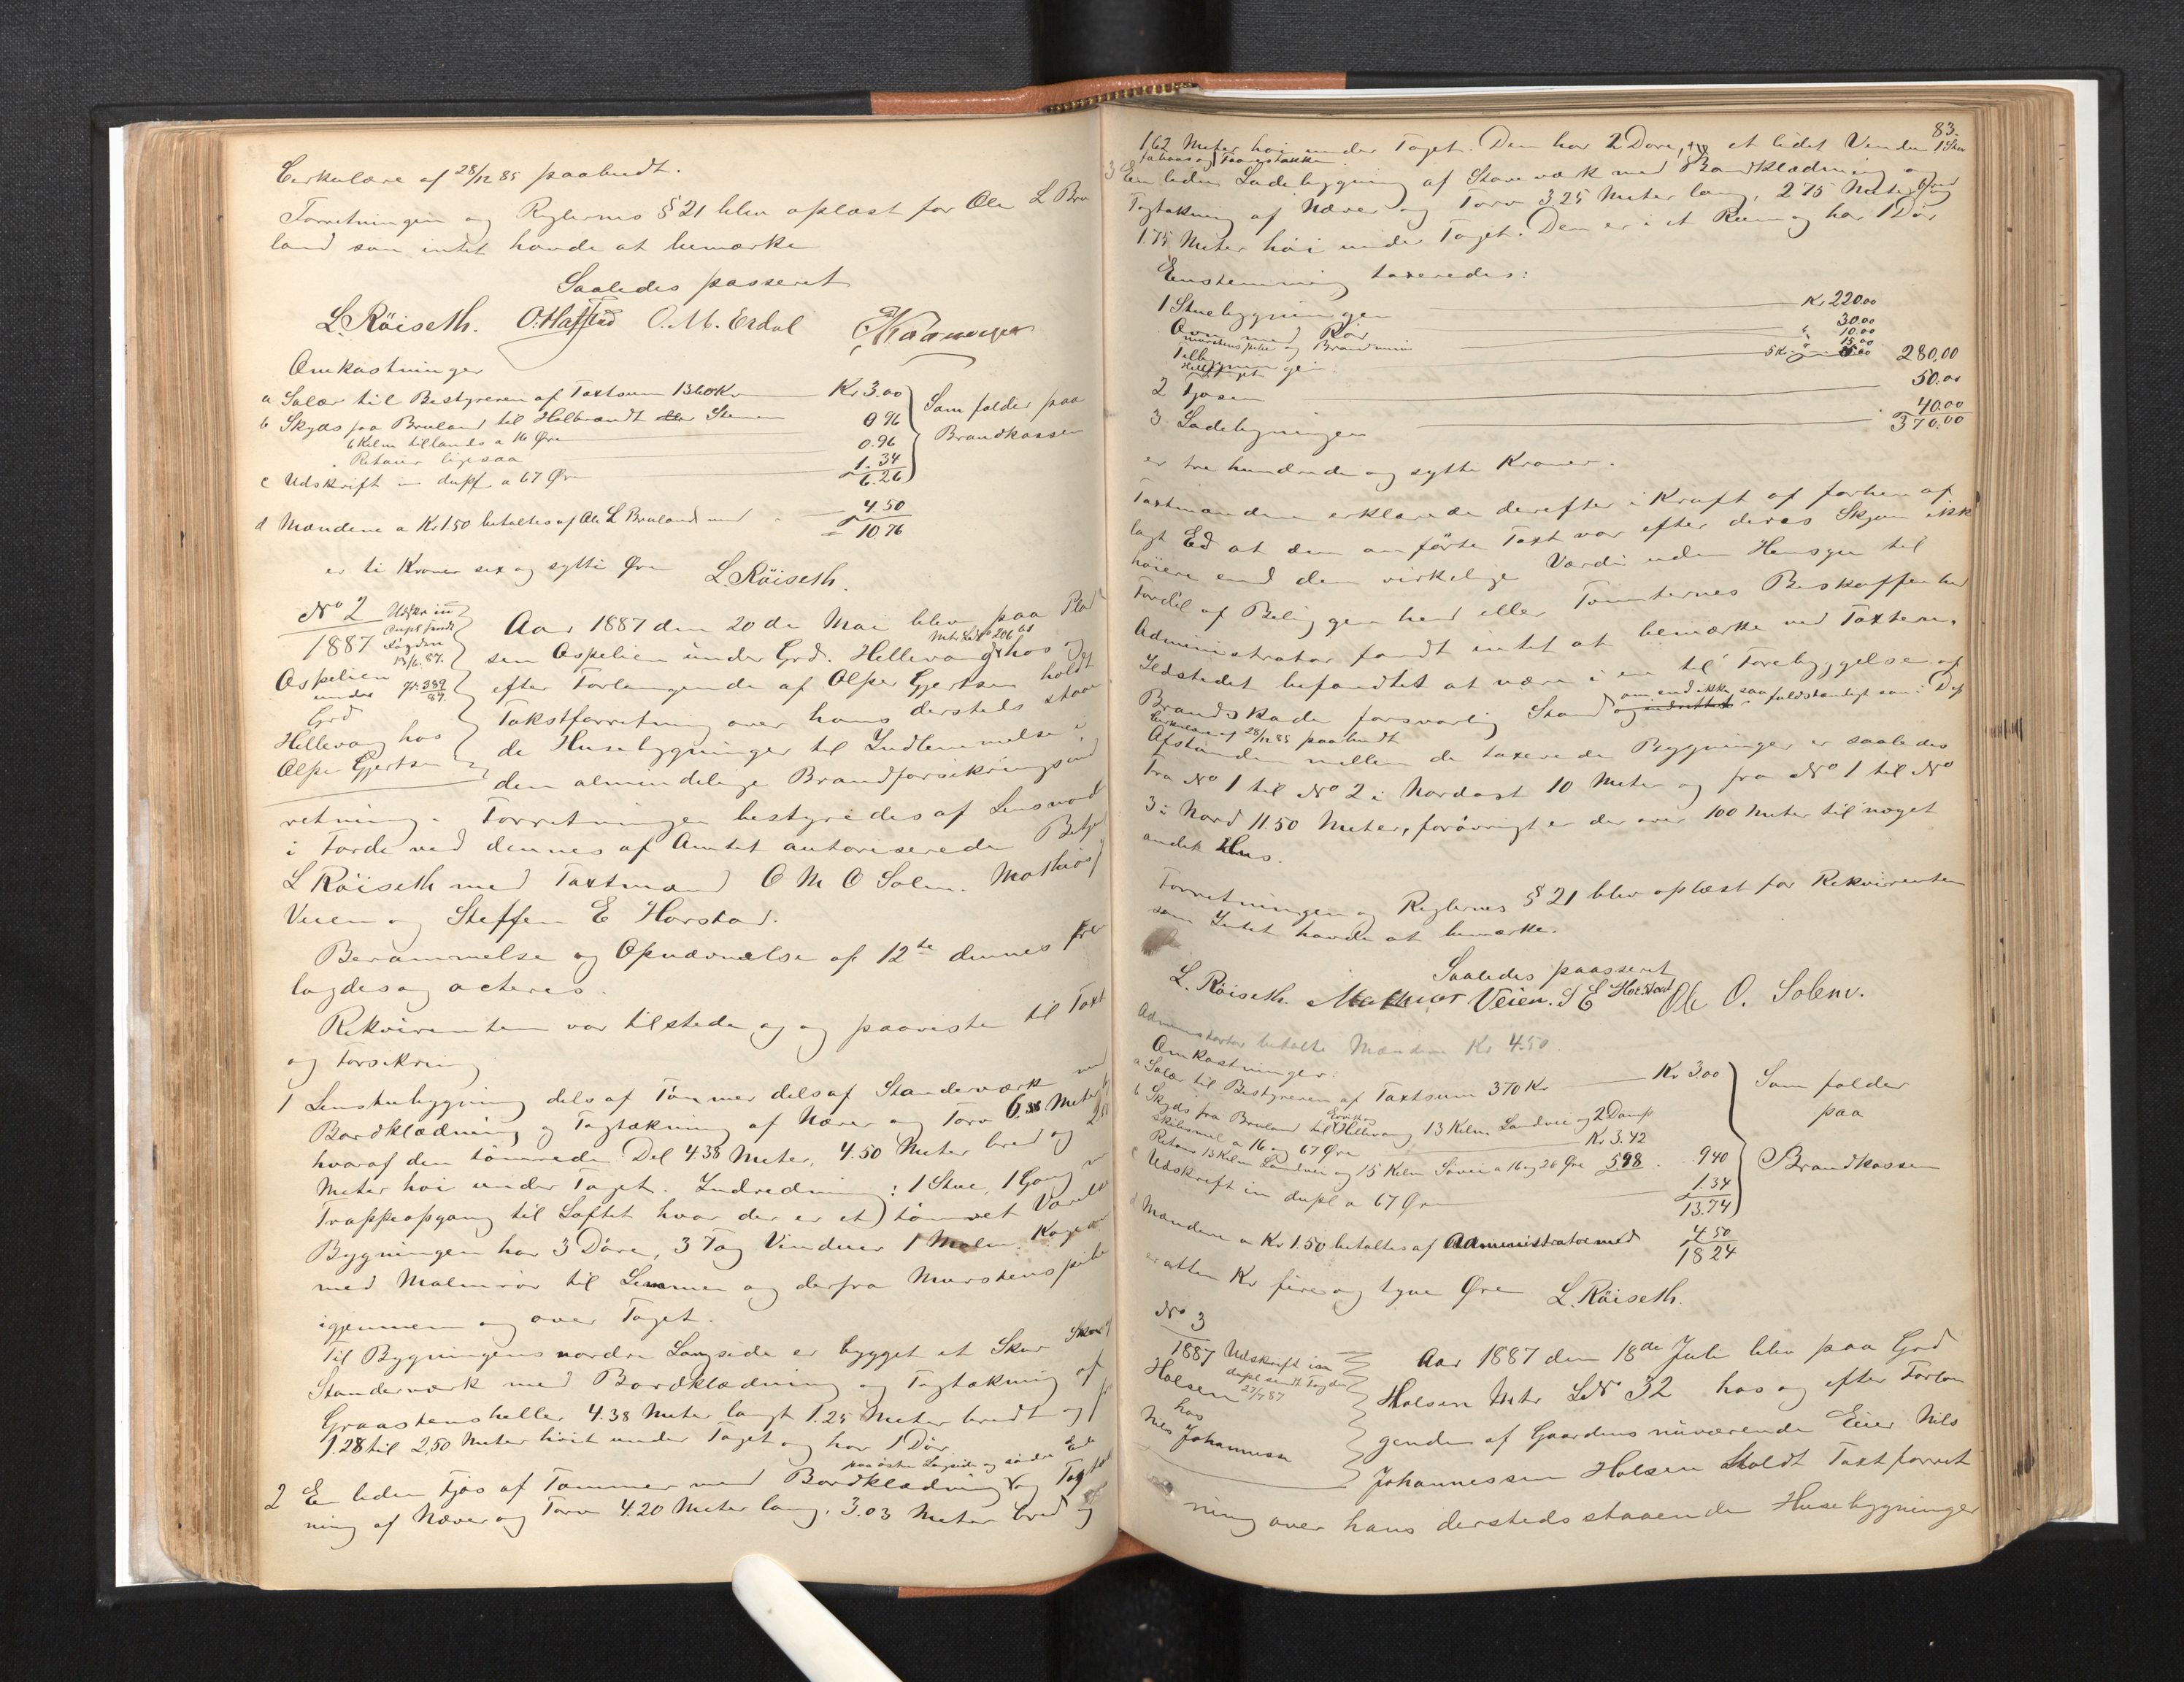 Cirkulære af 28/12 85 paabudt.
Forretningen og Reglernes § 21 blev oplæst for Ole L Bru
land som intet havde at bemærke
Saaledes passeret
L. Röiseth. O. Hafstad O. M. Erdal
Omkostninger
a Salær til Bestyreren af Taxtsum 1360 Kr Kr 3.00
b Skyds fra Bruland til Halbrændt Stenen 0 96
6 Kilm tillands a 16 Øre
Retour ligesaa 0.96
c Udskrift in dupl. a 67 Øre 1.34
6.26
Som falder paa
Brandkassen
d Mændene a Kr 1.50 betaltes af Ole L Bruland med 4.50
10 76
er ti Kroner sex og sytti Øre L. Röiseth.
No 2
1887
Udskr in
dupl sendt
Fogden
13/6. 87.
Aspelien
under
Grd
Hellevang hos
Olper Gjertsen
gr. 389
87.
Aar 1887 den 20de Mai blev paa Plad
sen Aspelien under Grd. Hellevang hos og
Mtr LNo 206
efter Forlangende af Olper Gjertsen holdt
Takstforretning over hans dersteds staaen
de Husebygninger til Indlemmelse i
den almindelige Brandforsikringsind
retning. Forretningen bestyredes af Lensmand
i Förde ved dennes af Amtet autoriserede Betjent
L Röiseth med Taxtmænd O M O Solem. Mathias
Veien og Steffen E Horstad.
Berammelse og Opnævnelse af 12te dennes frem
lagdes og acteres.
Rekvirenten var tilstede og og paaviste til Taxt
og Forsikring
1 Enstubygning dels af Tömmer dels af Standerværk med
Bordklædning og Tagtækning af Næver og Torv 6.88 Meter
hvoraf den tömrede Del 4.38 Meter, 4.50 Meter bred og
Meter höi under Taget. Indredning: 1 Stue, 1 Gang
Trappeopgang til Loftet hvor der er et tömret Værelse
Bygningen har 3 Döre, 3 Fag Vinduer 1 Malm Kogeovn
med Malmrör til Lemmen og derfra Murstenspibe
igjennem og over Taget.
Til Bygningens nordre Langside er bygget et Skur
Standerværk med Bordklædning og Tagtækning af
Graastensheller 4.38 Meter langt 1.25 Meter bredt og
1.28 til 2,50 Meter höit under Taget og har 1 Dör
paa östre Langside og söndre Ende
2 En liden Fjös af Tömmer med Bordklædning og Tagtæk
ning af Næver og Torv 4.20 Meter lang, 3.03 Meter bred og
83.
1.62 Meter höi under Taget. Den har 2 Döre, et lidet Vindu
3 En liden Ladebygning af Stavværk med Bordklædning og
Tagtækning af Næver og Torv 3 25 Meter lang, 2 75 Meter bred og
1.75 Meter höi under Taget. Den er i et Rum og har 1 Dör
Enstemmig taxeredes:
1 Stuebygningen Kr 220.00
Ovn med Rör 30.00
Murstenspibe og Brandmur " 10.00
Tilbygningen " 15.00
Helletaget 5 Kr 5.00 280.00
2 Fjösen 50.00
3. Ladebygningen 40.00
370.00
er tre hundrede og sytti Kroner.
Taxtmændene erklærede derefter i Kraft af forhen af
lagt Ed at den anförte Taxt var efter deres Skjön ikke
höiere end den virkelige Værdi uden Hensyn til
Fordel af Beliggenhed eller Tomternes Beskaffenhed
Administrator fandt intet at bemærke ved Taxten.
Ildstedet befandtes at være i en til Forebyggelse af
Brandskade forsvarlig Stand om end ikke saa fuldstændigt som i Dep
Cirkulære af 28/12 85 paabudt
Afstanden mellem de taxerede Bygninger er saaledes
Fra No 1 til No 2 i Nordost 10 Meter og fra No 1 til No
3 i Nord 11.50 Meter, forövrigt er der over 100 Meter til noget
andet Hus.
Forretningen og Reglernes § 21 blev oplæst for Rekvirenten
som Intet havde at bemærke.
Saaledes paasseret
L. Röiseth Mathias Veien. S E Horstad Ole O. Solem.
Administrator betalte Mændene Kr 4.50.
Omkostninger:
a Salær til Bestyreren af Taxtsum 370 Kr Kr 3.00
b Skyds fra Bruland til Hellevang, 13 Kilm. Landvei og 2 Damp
Skibsmil a 16 og 67 Øre Kr 3.42
Retour 13 Kilm Landvei og 15 Kilm Söveien a 16 og 26 Øre 5 98 9 40
c Udskrift in dupl a 67 Øre 1.34
13.74
Som falder
paa
Brandkassen
d Mændene a Kr 1.50 betaltes af Administrator med 4 50
18 24
er atten Kr fire og tyve Øre L. Röiseth.
No 3
1887
Udskrift in
dupl sendt Fogden
27/7 87
Holsen
hos
Nils Johannesen
Aar 1887 den 18de Juli blev paa Grd
Holsen Mtr LNo 32 hos og efter Forlan
gende af Gaardens nuværende Eier Nils
Johannessen Holsen holdt Taxtforret
ning over hans dersteds staaende Husebygninger